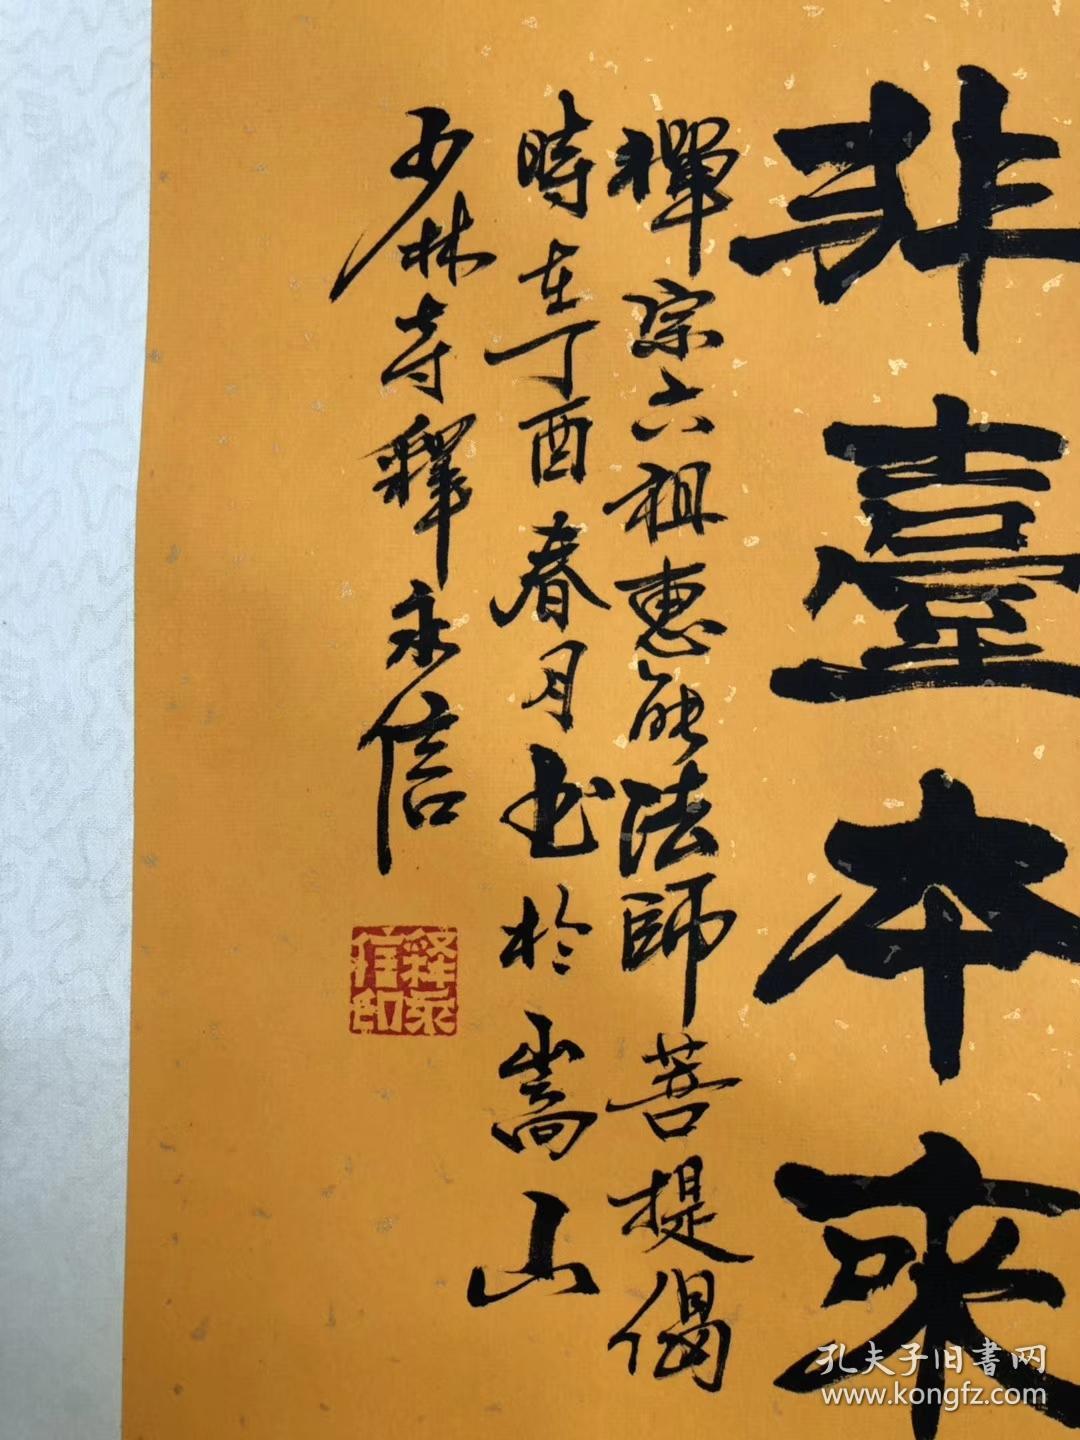 非臺本來
禪宗六祖惠能法師菩提偈
時在丁酉春月书於嵩山
少林寺釋永信
释永
信印
孔夫子旧書网
www.kongfz.com